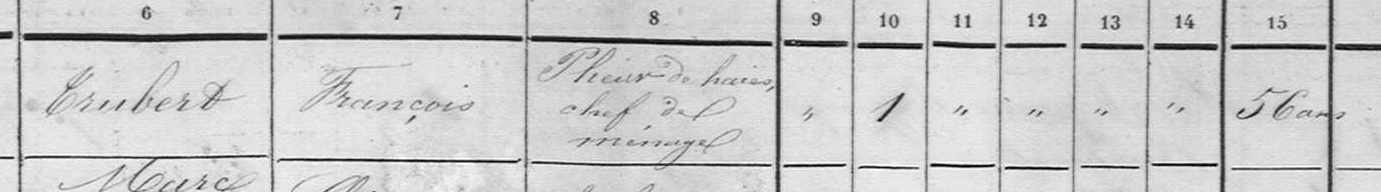 6 7 8 9 10 11 12 13 14 15
Trubert François Plieur de haies,
chef de
ménage
„ 1 „ „ „ „ 56 ans
Marc